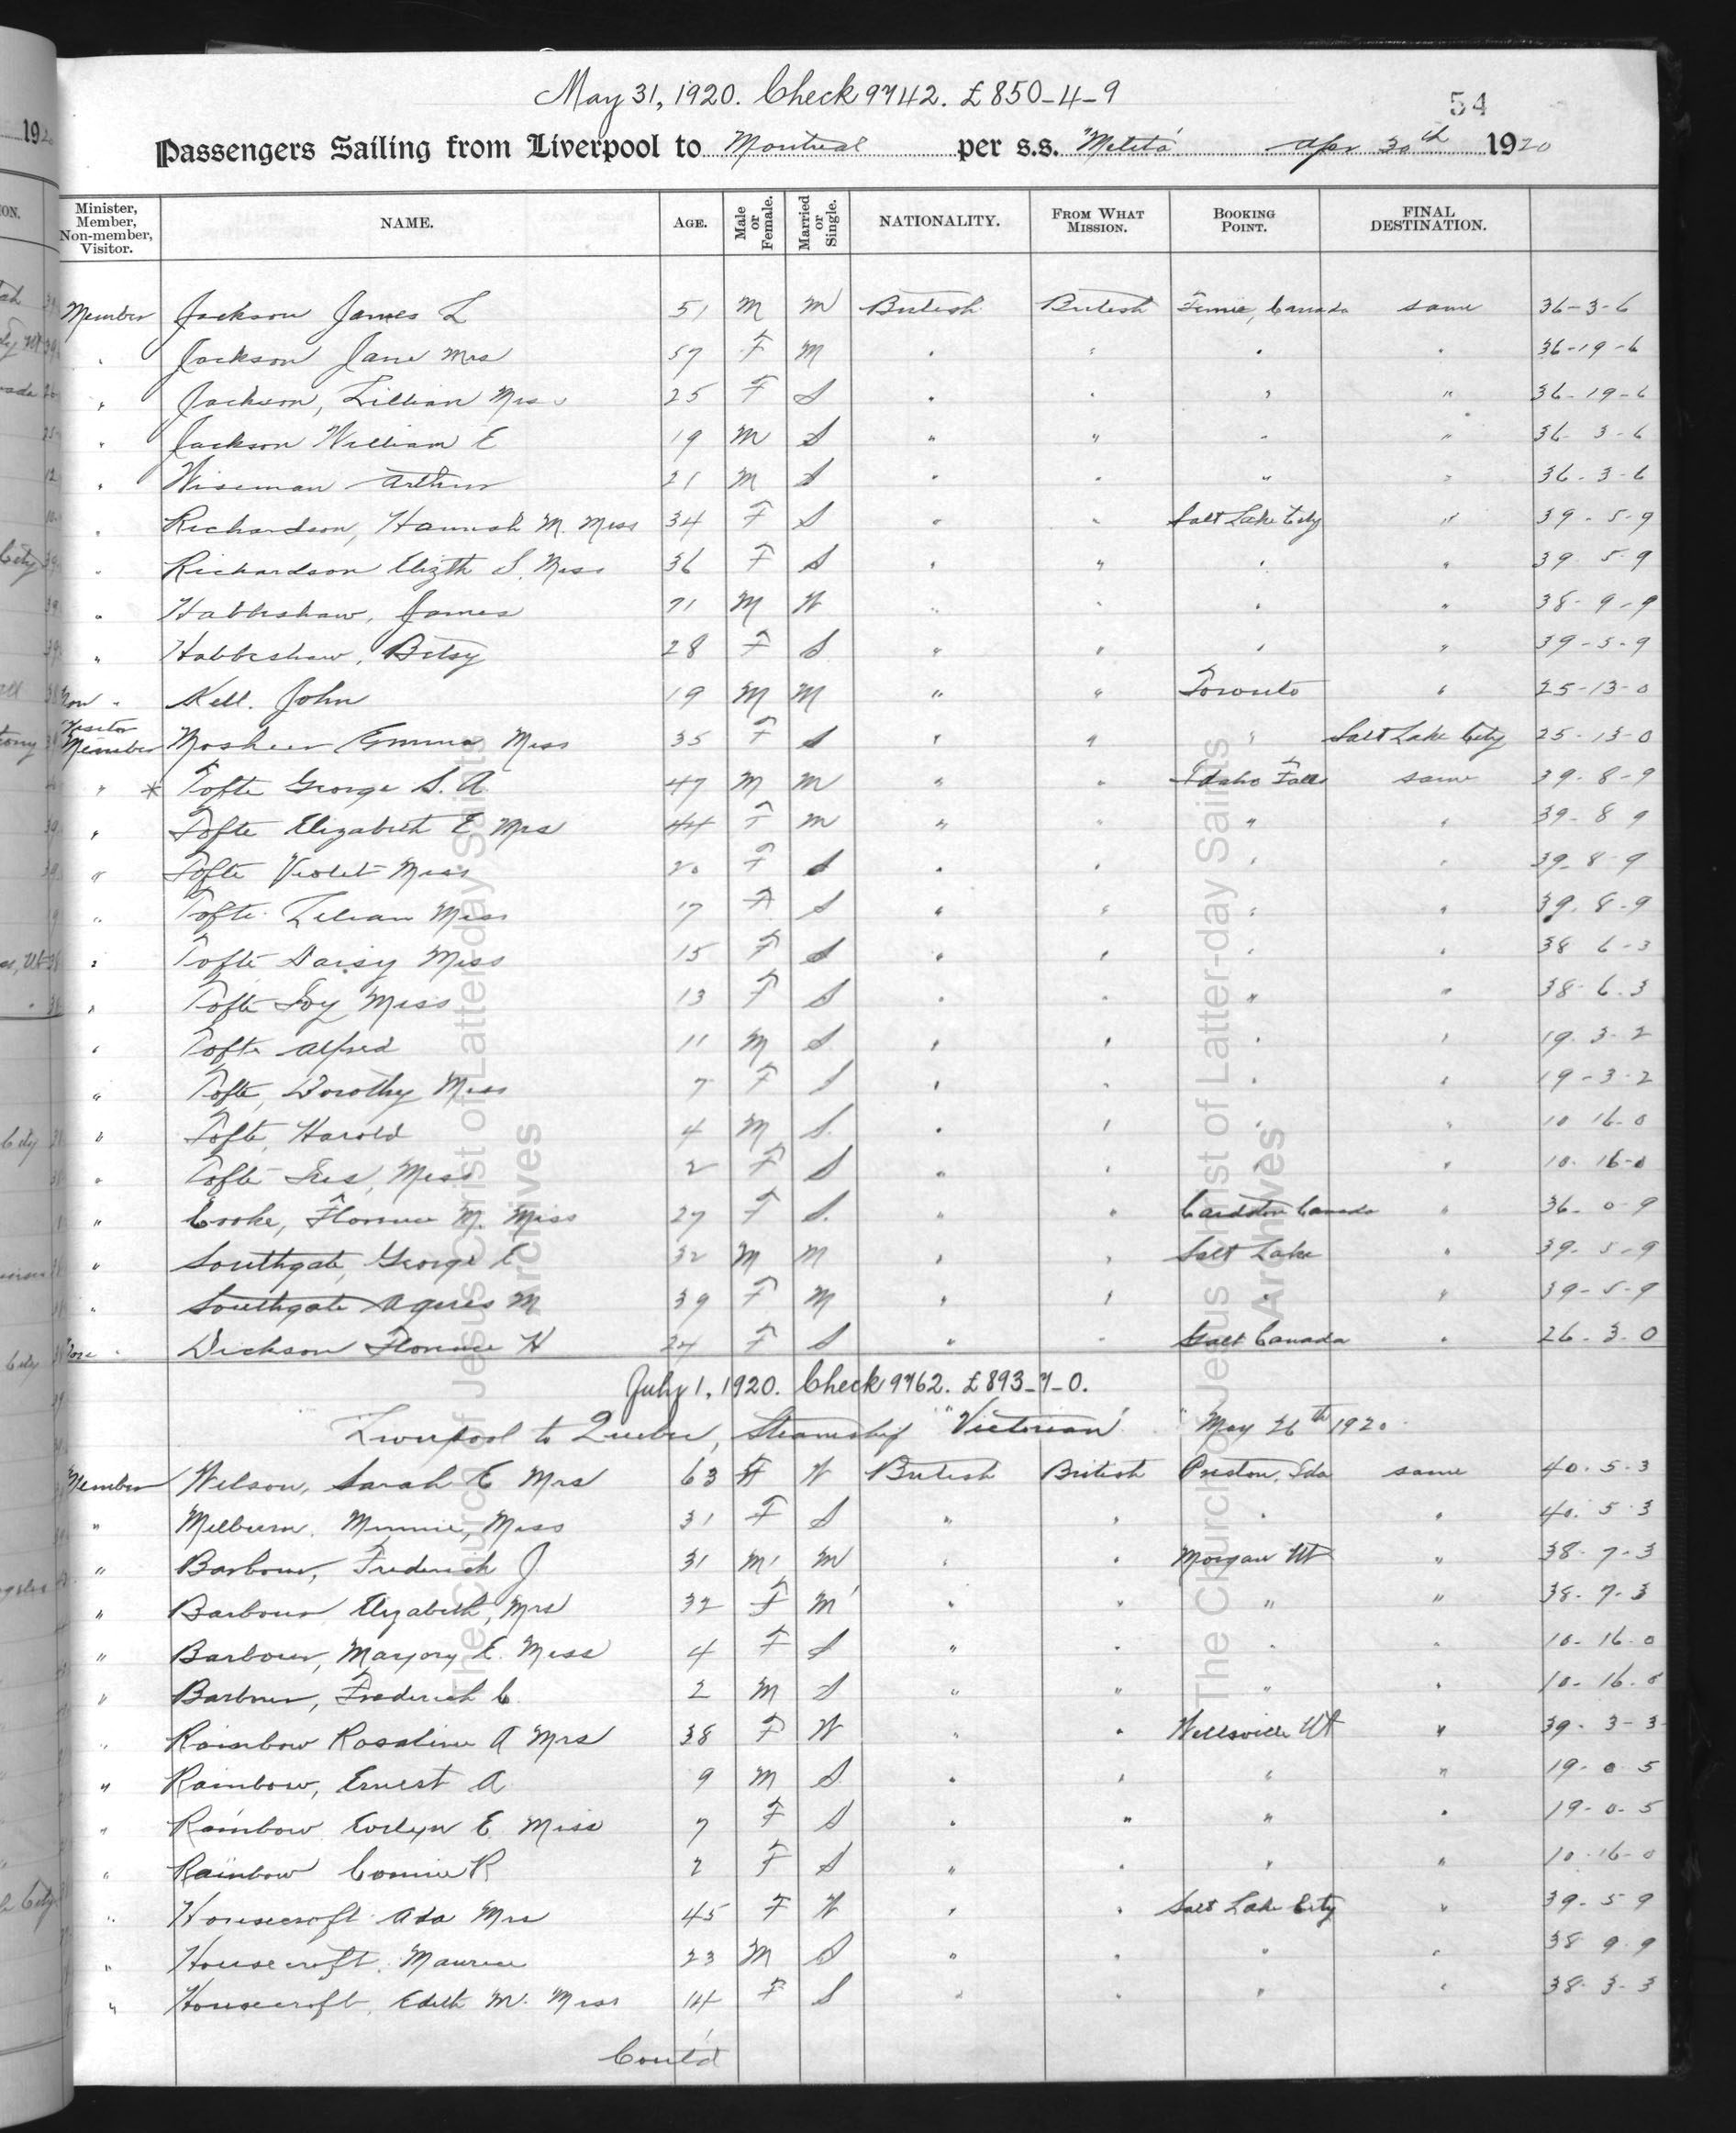 May 31, 1920. Check 9742. £850-4-9
54
Passengers Sailing from Liverpool to Montreal per s.s. "Melita" Apr 30th 1920
Minister, Member, Non-member, Visitor. NAME. AGE. Male or Female. Married or Single. NATIONALITY. FROM WHAT MISSION. BOOKING POINT. FINAL DESTINATION.
Member Jackson James L 51 M M British British Fernie, Canada same 36-3-6
" Jackson Jane Mrs 57 F M " " " " 36-19-6
" Jackson, Lillian Miss 25 F S " " " " 36-19-6
" Jackson William E 19 M S " " " " 36-3-6
" Wiseman Arthur 21 M S " " " " 36-3-6
" Richardson, Hannah M. Miss 34 F S " " Salt Lake City " 39-5-9
" Richardson Elizth S. Miss 36 F S " " " " 39-5-9
" Habbeshaw, James 71 M W " " " " 38-9-9
" Habbeshaw, Betsy 28 F S " " " " 39-5-9
Non " Kell. John 19 M M " " Toronto " 25-13-0
Visitor
Member Mosheer Emma Miss 35 F S " " " Salt Lake City 25-13-0
" * Tofte George S. A. 47 M M " " Idaho Falls same 39-8-9
" Tofte Elizabeth E Mrs 44 F M " " " " 39-8-9
" Tofte Violet Miss 20 F S " " " " 39-8-9
" Tofte Lilian Miss 17 F S " " " " 39-8-9
" Tofte Daisy Miss 15 F S " " " " 38-6-3
" Tofte Ivy Miss 13 F S " " " " 38-6-3
" Tofte Alfred 11 M S " " " " 19-3-2
" Tofte, Dorothy Miss 7 F S " " " " 19-3-2
" Tofte, Harold 4 M S " " " " 10-16-0
" Tofte Iris, Miss 2 F S " " " " 10-16-0
" Cooke, Florence M. Miss 27 F S. " " Cardston Canada " 36-0-9
" Southgate, George E 32 M M " " Salt Lake " 39-5-9
" Southgate Agnes M 39 F M " " " " 39-5-9
Non " Dickson Florence H 24 F S " " Galt Canada " 26-3-0
July 1, 1920. Check 9762. £893-7-0.
Liverpool to Quebec, Steamship "Victorian" May 26th 1920
Member Wilson, Sarah E Mrs 63 F W British British Preston, Ida same 40-5-3
" Milburn, Minnie, Miss 31 F S " " " " 40-5-3
" Barbour, Frederick J 31 M M " " Morgan Ut " 38-7-3
" Barbour Elizabeth, Mrs 32 F M " " " " 38-7-3
" Barbour, Marjory E. Miss 4 F S " " " " 10-16-0
" Barbour, Frederick C. 2 M S " " " " 10-16-0
" Rainbow Rosaline A Mrs 38 F W " " Wellsville Ut " 39-3-3
" Rainbow, Ernest A 9 M S " " " " 19-0-5
" Rainbow Evelyn E. Miss 7 F S " " " " 19-0-5
" Rainbow Connie R 2 F S " " " " 10-16-0
" Housecroft Ada Mrs 45 F W " " Salt Lake City " 39-5-9
" Housecroft, Maurice 23 M S " " " " 38-9-9
" Housecroft, Edith M. Miss 14 F S " " " " 38-3-3
Cont'd
The Church of Jesus Christ of Latter-day Saints
Archives
The Church of Jesus Christ of Latter-day Saints
Archives